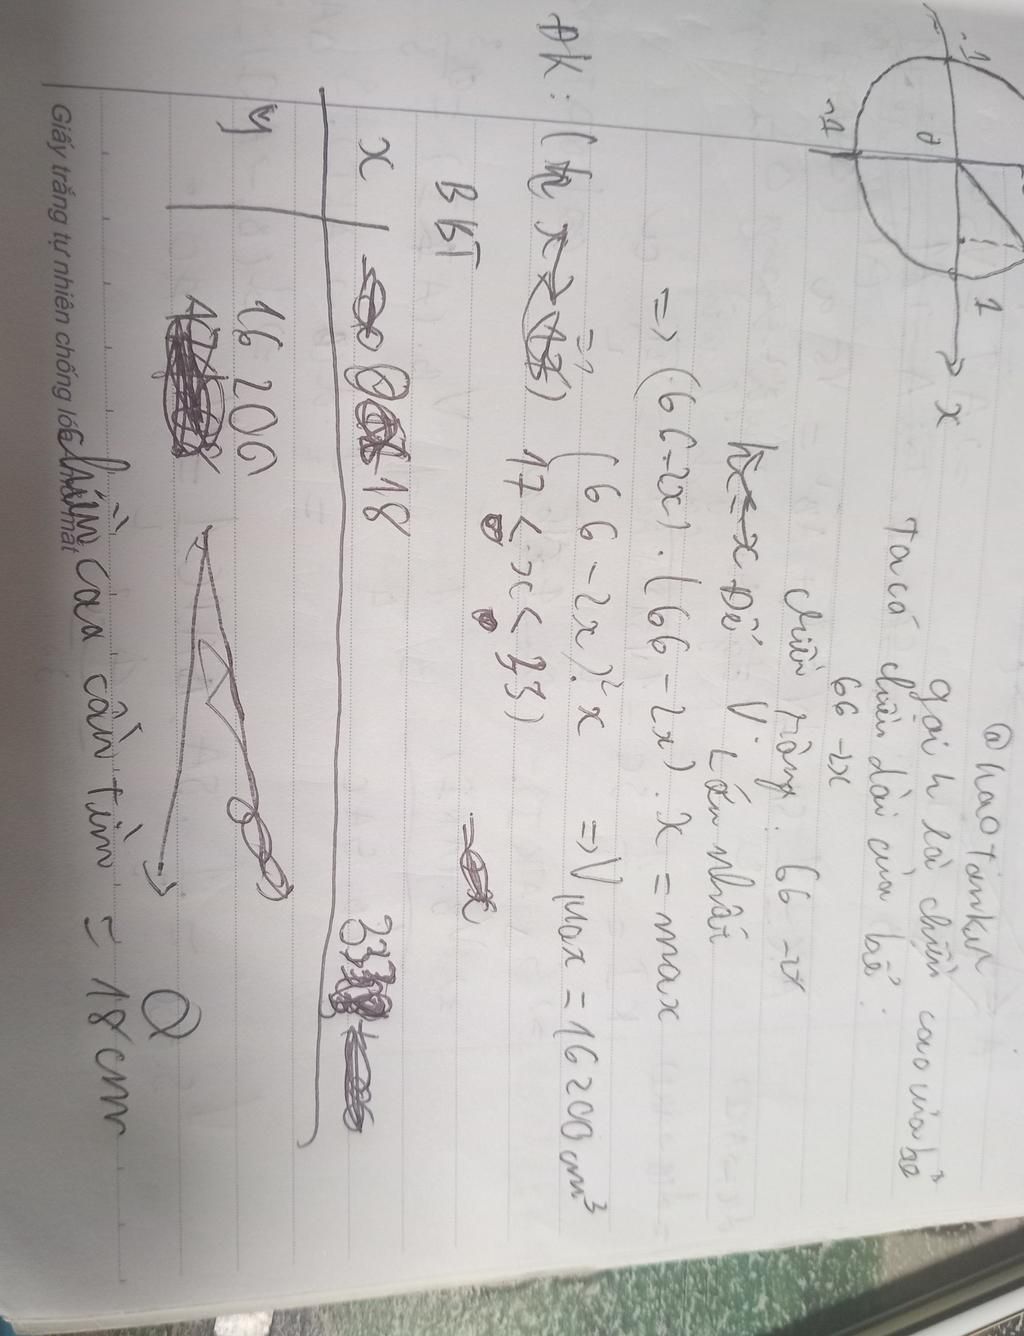 -1
0
1
-1
x
@haotankun
gọi h là chiều cao của bể
Ta có chiều dài của bể:
66 - 2x
chiều rộng: 66 - 2x
Để V lớn nhất
=> (66 - 2x) . (66 - 2x) . x = max
=> (66 - 2x)² x => Vmax = 16200 cm³
ĐK:
17 < x < 33)
BBT
x 18 33
y 16 200
0
chiều cao cần tìm = 18 cm
Giấy trắng tự nhiên chống lóa